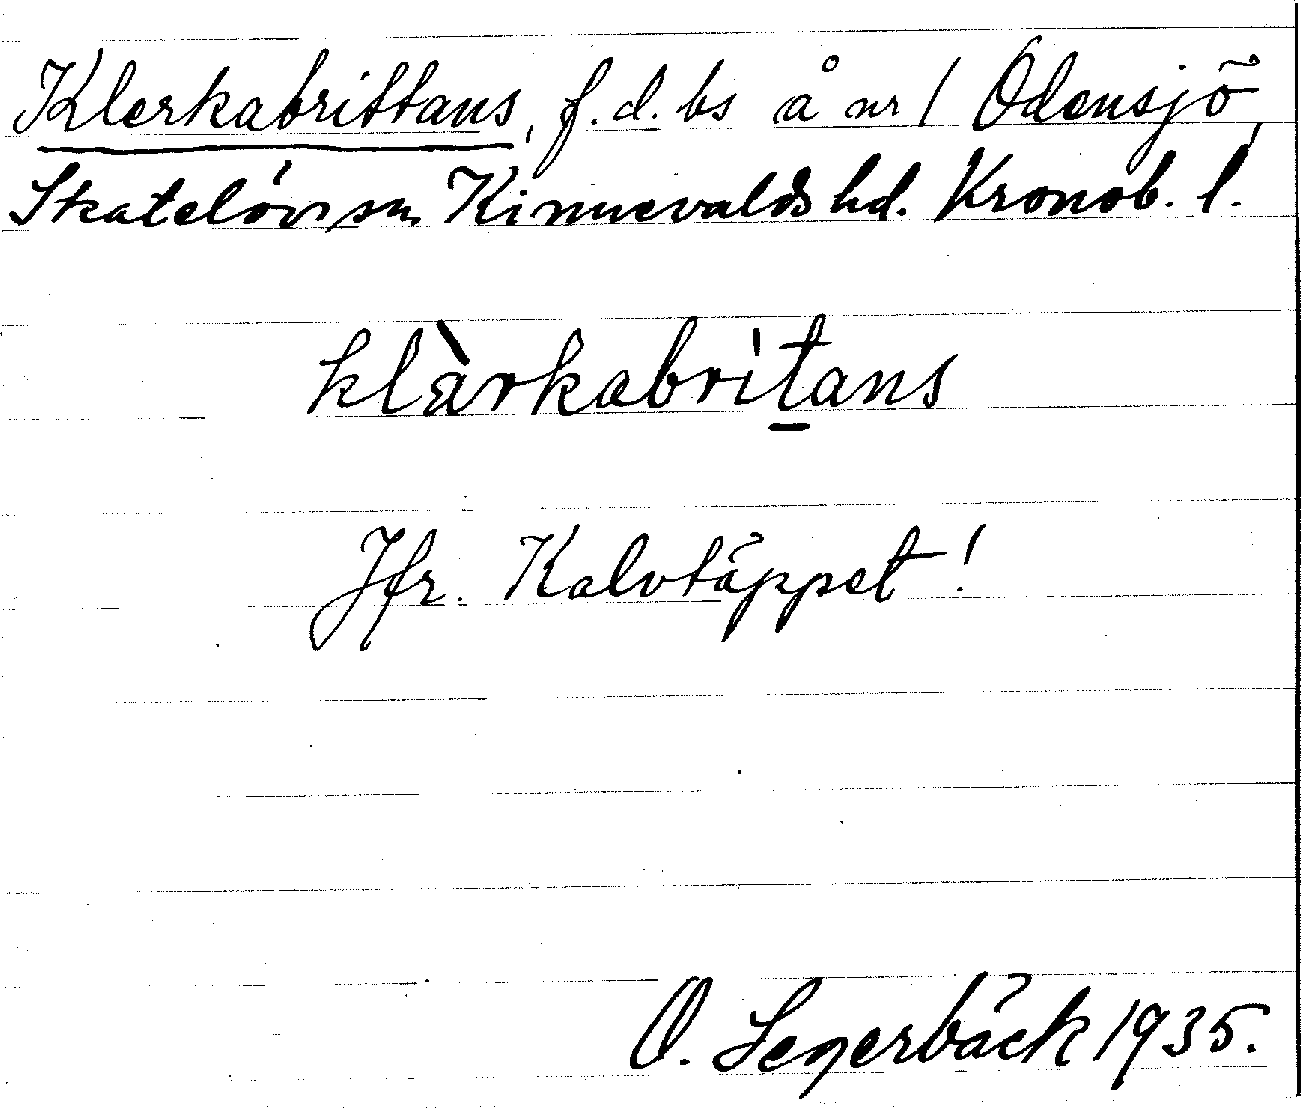 Klerkabrittans, f.d. bs å nr 1 Odensjö,
Skatelövs sn Kinnevalds hd. Kronob. l.
klàrkabrit̲ans
Jfr. Kalvtäppet!
O. Segerbäck 1935.